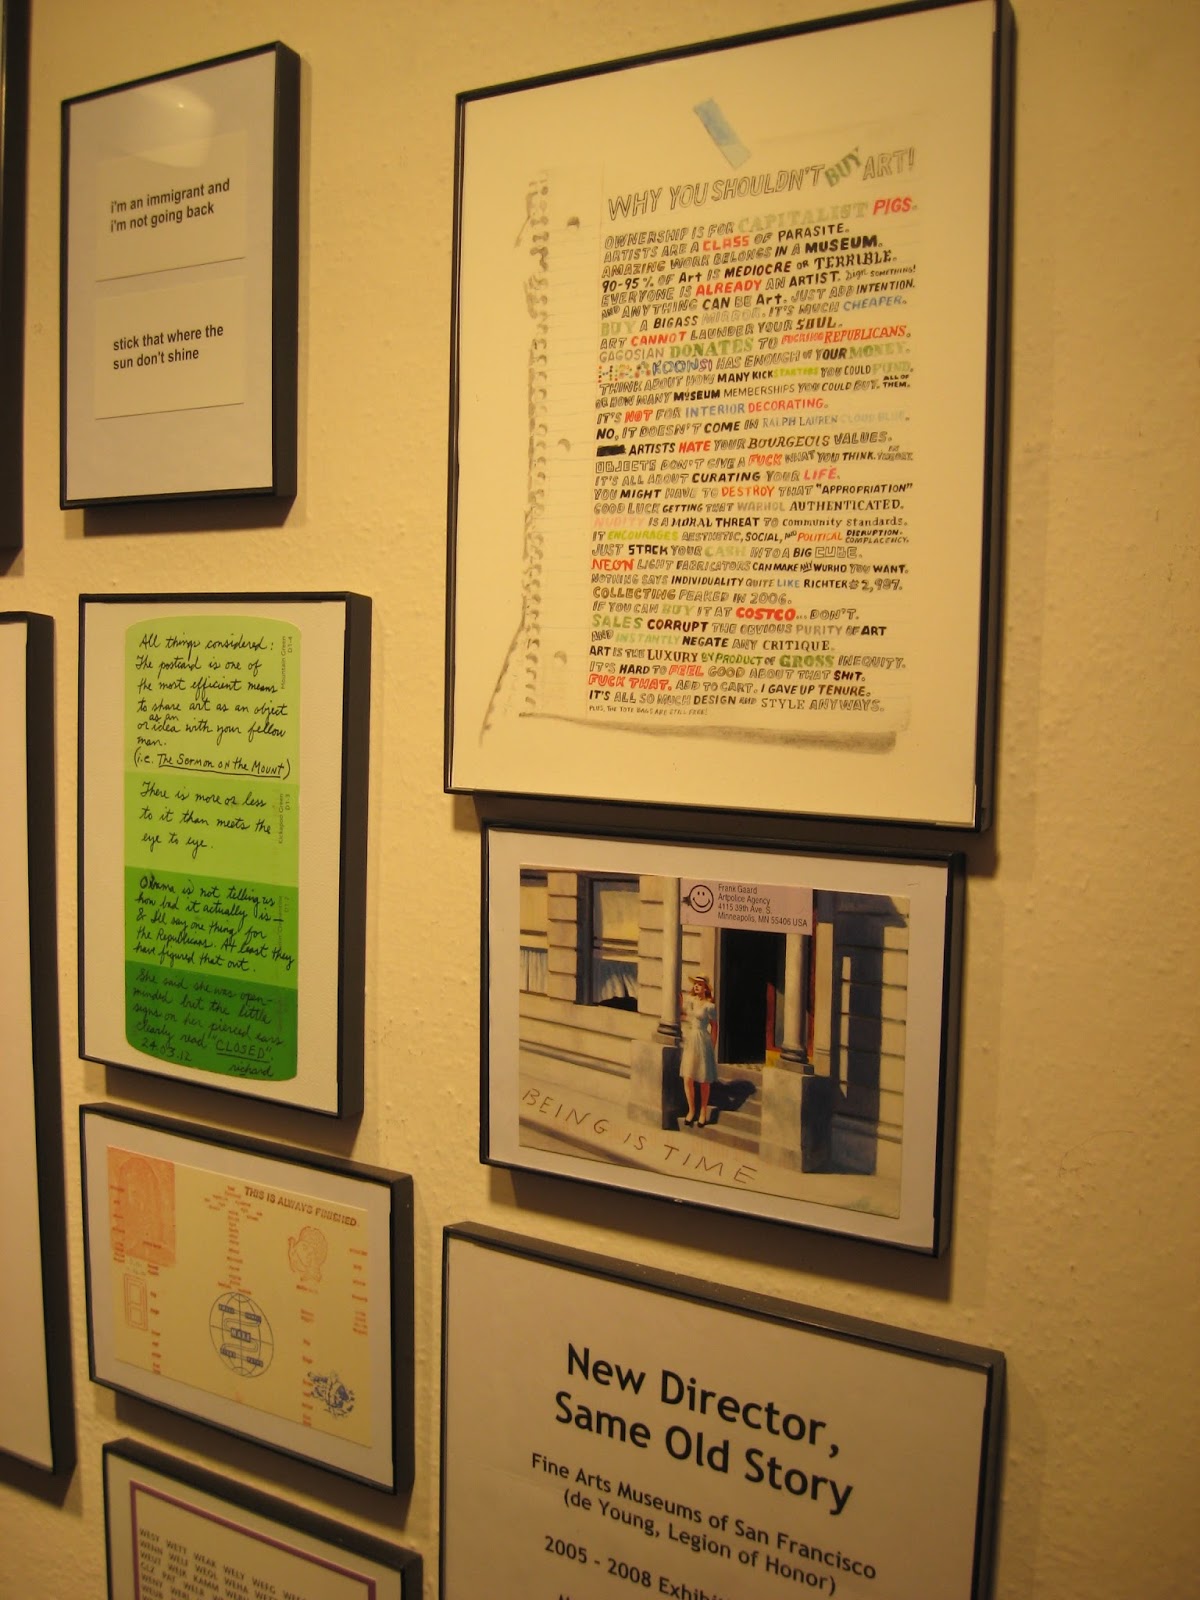 i'm an immigrant and
i'm not going back
stick that where the
sun don't shine
WHY YOU SHOULDN'T BUY ART!
OWNERSHIP IS FOR CAPITALIST PIGS.
ARTISTS ARE A CLASS OF PARASITE.
AMAZING WORK BELONGS IN A MUSEUM.
90-95% OF Art IS MEDIOCRE OR TERRIBLE.
EVERYONE IS ALREADY AN ARTIST. SOMETHING!
AND ANYTHING CAN BE Art. JUST ADD INTENTION.
BUY A BIGASS MIRROR. IT'S MUCH CHEAPER.
ART CANNOT LAUNDER YOUR SOUL.
GAGOSIAN DONATES TO FUCKING REPUBLICANS.
KOONS) HAS ENOUGH OF YOUR MONEY.
THINK ABOUT HOW MANY KICKSTARTERS YOU COULD FUND.
OR HOW MANY MUSEUM MEMBERSHIPS YOU COULD BUY. ALL OF THEM.
IT'S NOT FOR INTERIOR DECORATING.
NO, IT DOESN'T COME IN RALPH LAUREN CLOUD BLUE.
ARTISTS HATE YOUR BOURGEOIS VALUES.
OBJECTS DON'T GIVE A FUCK WHAT YOU THINK.
IT'S ALL ABOUT CURATING YOUR LIFE.
YOU MIGHT HAVE TO DESTROY THAT "APPROPRIATION"
GOOD LUCK GETTING THAT WARHOL AUTHENTICATED.
NUDITY IS A MORAL THREAT TO community standards.
IT ENCOURAGES AESTHETIC, SOCIAL, AND POLITICAL DISRUPTION. COMPLACENCY.
JUST STACK YOUR CASH INTO A BIG CUBE.
NEON LIGHT FABRICATORS CAN MAKE ANY WURHD YOU WANT.
NOTHING SAYS INDIVIDUALITY QUITE LIKE RICHTER # 2,987.
COLLECTING PEAKED IN 2006.
IF YOU CAN BUY IT AT COSTCO... DON'T.
SALES CORRUPT THE OBVIOUS PURITY OF ART
AND INSTANTLY NEGATE ANY CRITIQUE.
ART IS THE LUXURY BYPRODUCT OF GROSS INEQUITY.
IT'S HARD TO FEEL GOOD ABOUT THAT SHIT.
FUCK THAT. ADD TO CART. I GAVE UP TENURE.
IT'S ALL SO MUCH DESIGN AND STYLE ANYWAYS.
PLUS, THE TOTE BAGS ARE STILL FREE!
All things considered:
The postcard is one of
the most efficient means
to share art as an object
as an
or idea with your fellow
man.
(i.e. The Sermon on the Mount)
There is more or less
to it than meets the
eye to eye.
Obama is not telling us
how bad it actually is –
& I'll say one thing for
the Republicans. At least they
have figured that out.
She said she was open-
minded but the little
signs on her pierced ears
clearly read "CLOSED".
24.03.12
richard
Mountain Green
D1-4
D1-3
Frank Gaard
Artpolice Agency
4115 39th Ave. S.
Minneapolis, MN 55406 USA
BEING IS TIME
THIS IS ALWAYS FINISHED
New Director,
Same Old Story
Fine Arts Museums of San Francisco
(de Young, Legion of Honor)
2005 - 2008
WEST WETT WEAK WELY WEFG